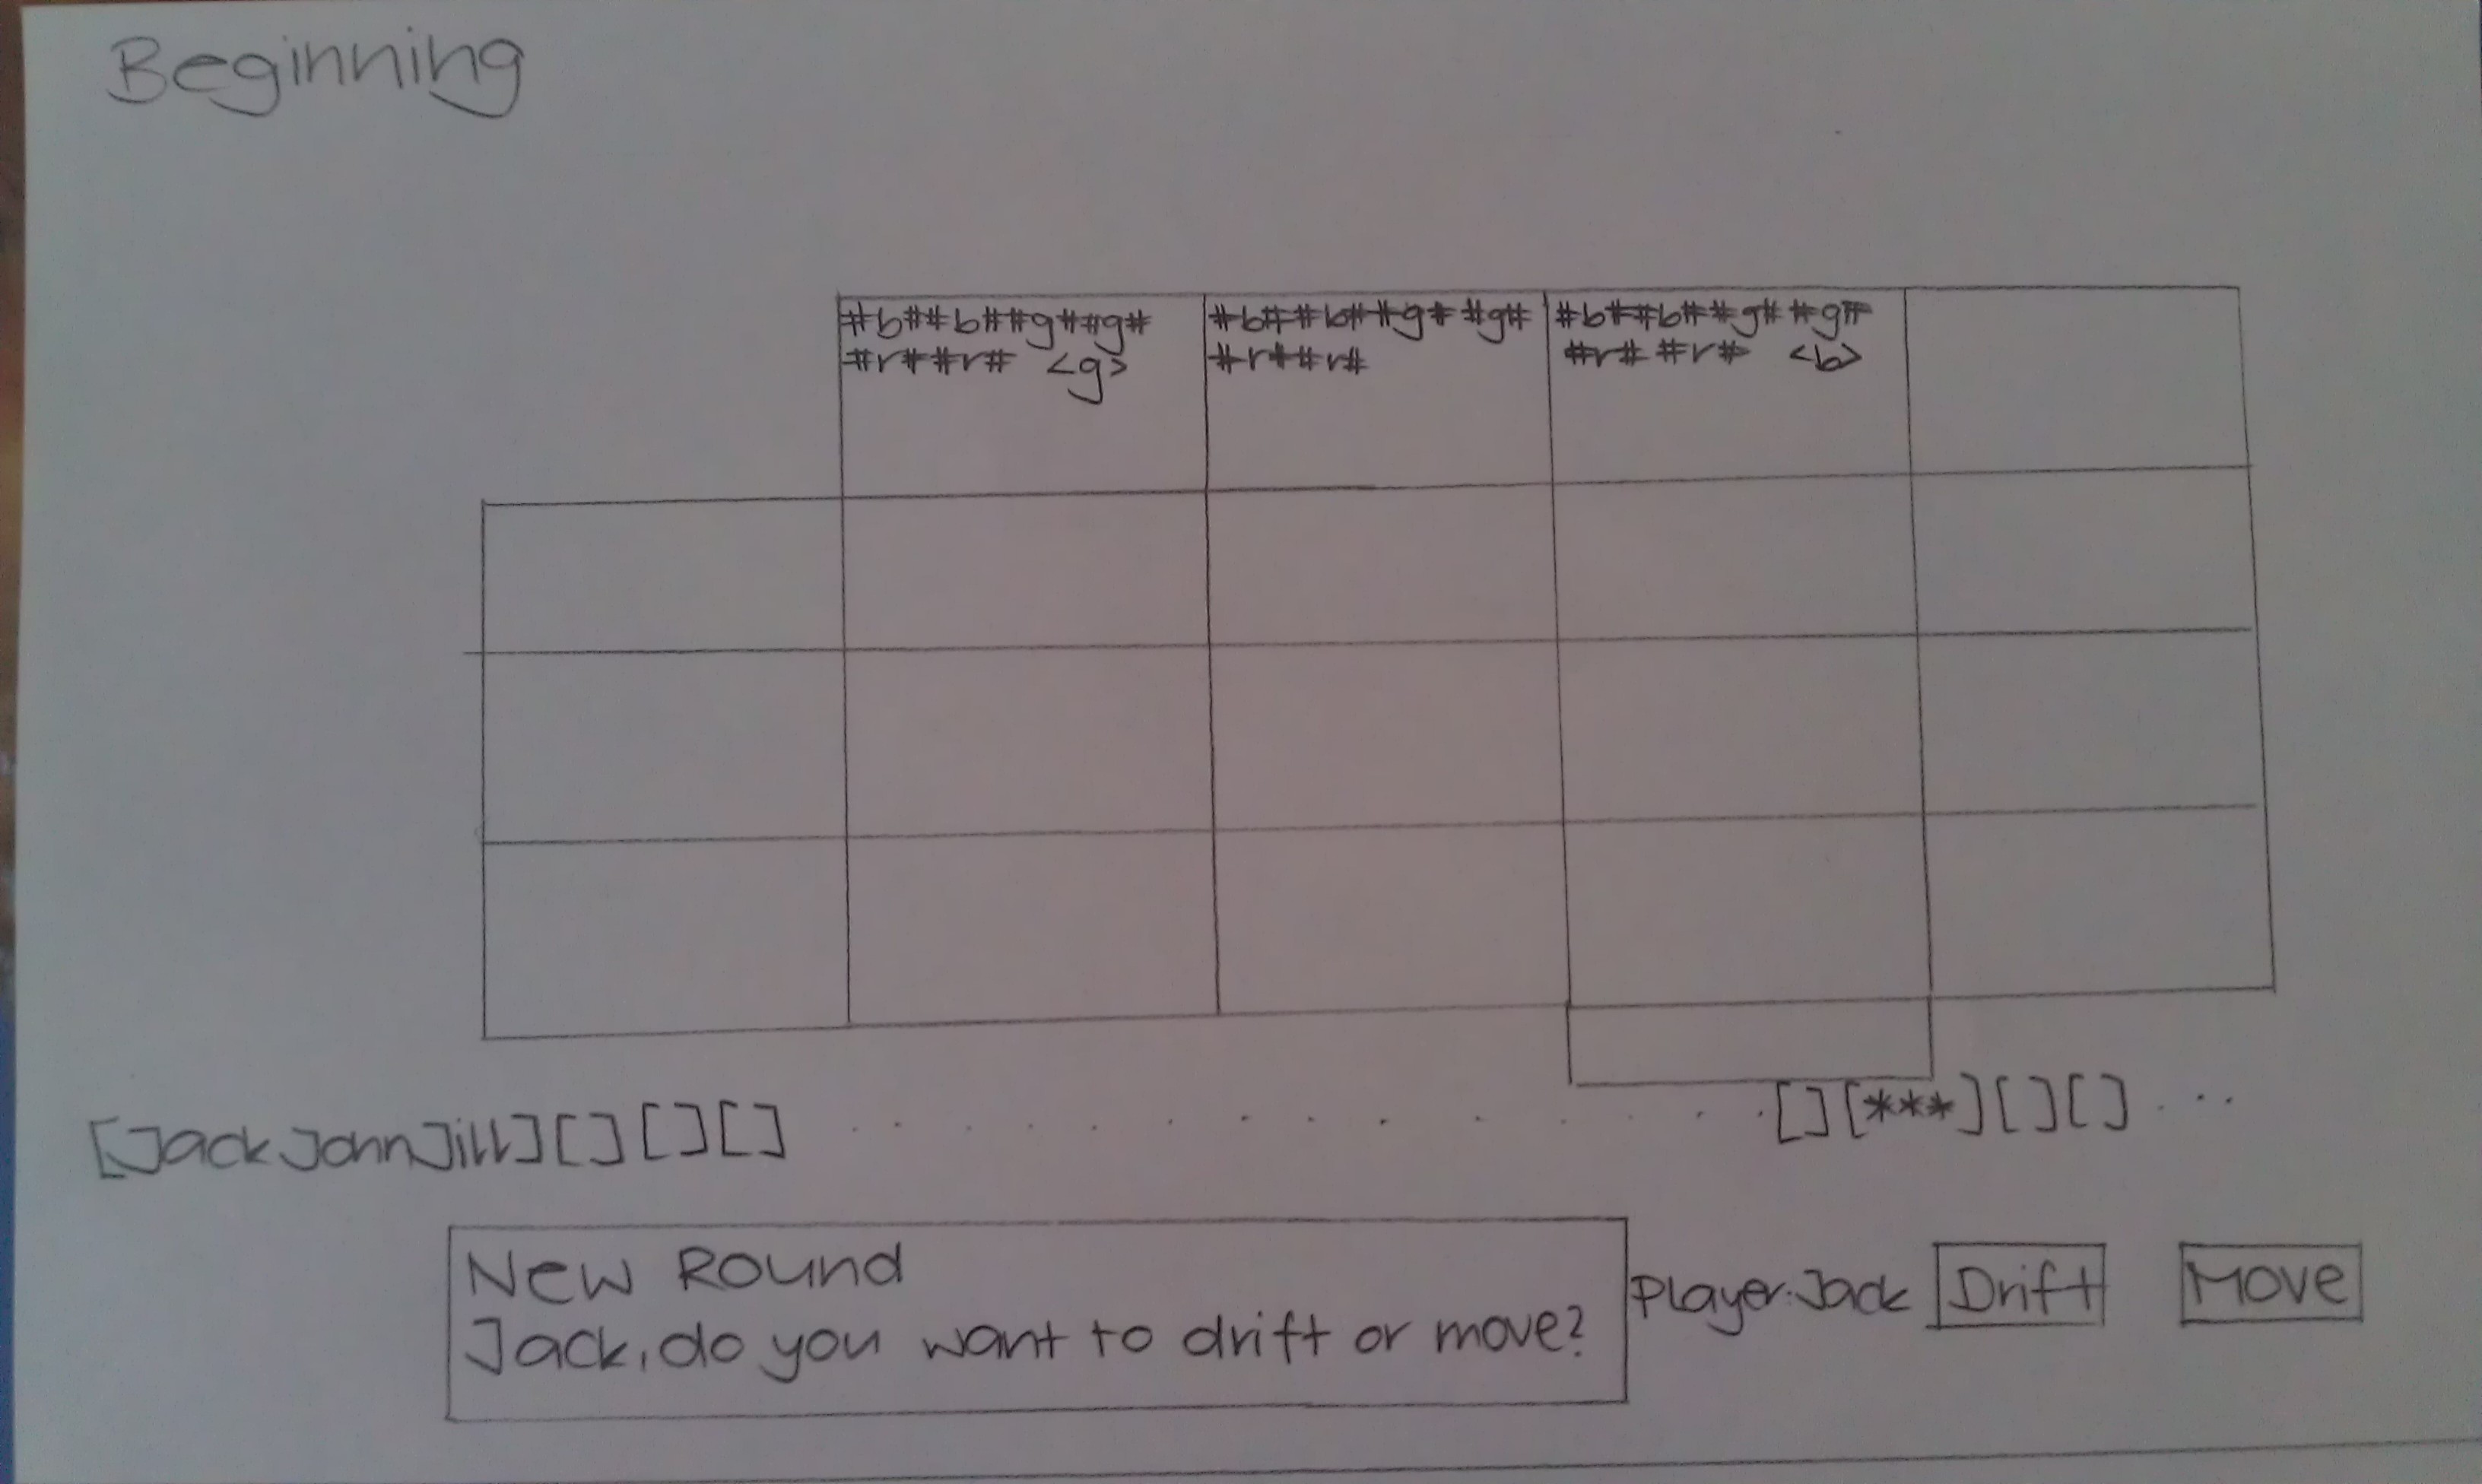 Beginning
#b##b##g##g#
#r##r# <g>
#b##b##g##g#
#r##r#
#b##b##g##g#
#r##r# <b>
[Jack John Jill][][][] . . . . . . . . . . . [][***][][] . . .
New Round
Jack, do you want to drift or move?
Player: Jack
Drift
Move